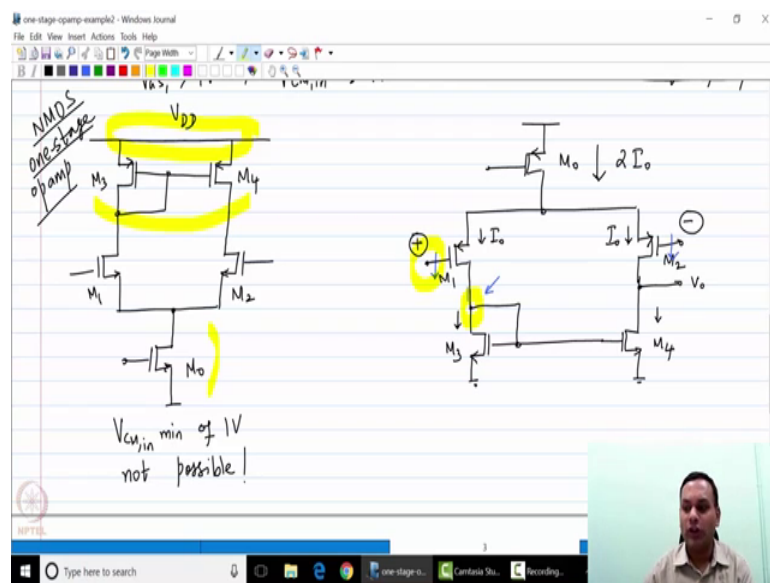 one-stage-opamp-example2 - Windows Journal
File Edit View Insert Actions Tools Help
Page Width
B I
NMOS
one-stage
opamp
VDD
M3
M4
M1
M2
M0
VCM,in min of 1V
not possible!
M0 ↓ 2I0
+
-
↓ I0
I0 ↓
M1
M2
V0
M3
M4
NPTEL
3
Type here to search
one-stage-o...
Camtasia Stu...
Recording...